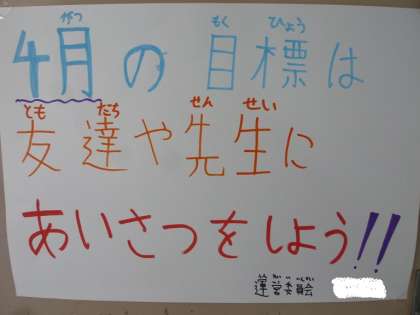 がつ もく ひょう
4月の目標は
とも だち せん せい
友達や先生に
あいさつをしよう!!
運営委員会